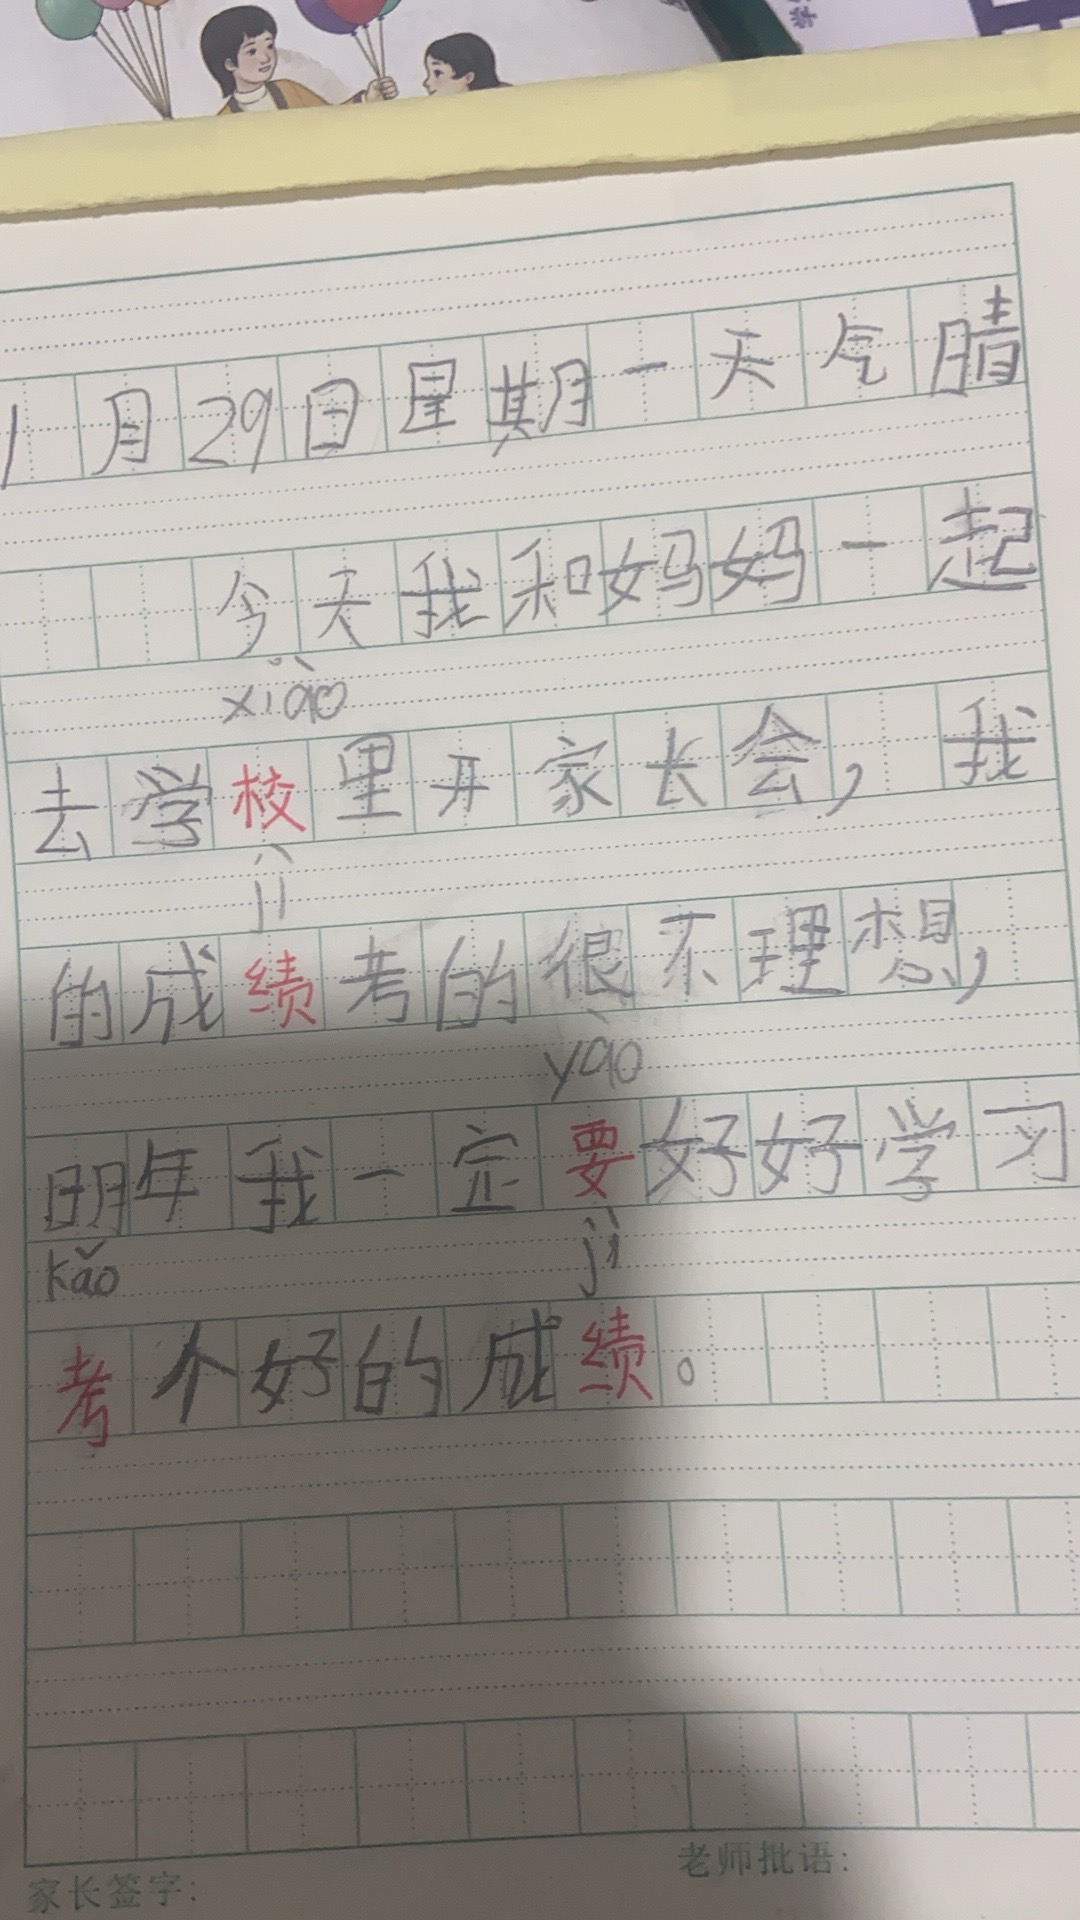 1月29日星期一天气晴
今天我和妈妈一起
xiào
去学校里开家长会，我
jì
的成绩考的很不理想，
yào
明年我一定要好好学习
kǎo jì
考个好的成绩。
家长签字： 老师批语：